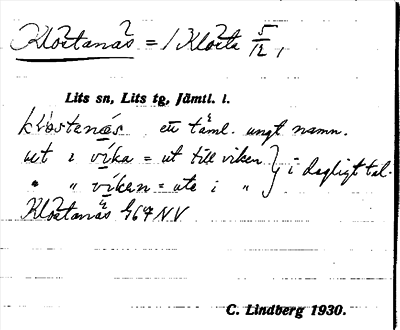 Klostanäs = / Klösta 5/12,
Lits sn, Lits tg, Jämtl. l.
klöstanäs, ett täml. ungt namn.
ut i vika = ut till viken } i dagligt tal.
" " viken = ute i "
Klöstanäs G 64 NV
C. Lindberg 1930.